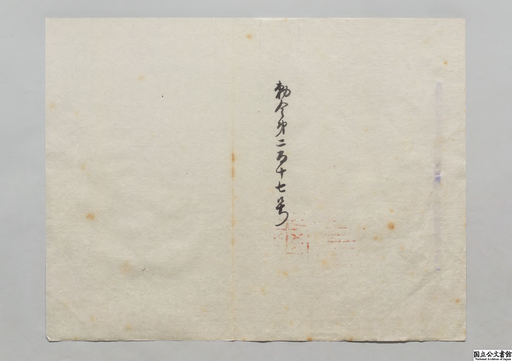 勅令第二百十七号
国立公文書館
National Archives of Japan